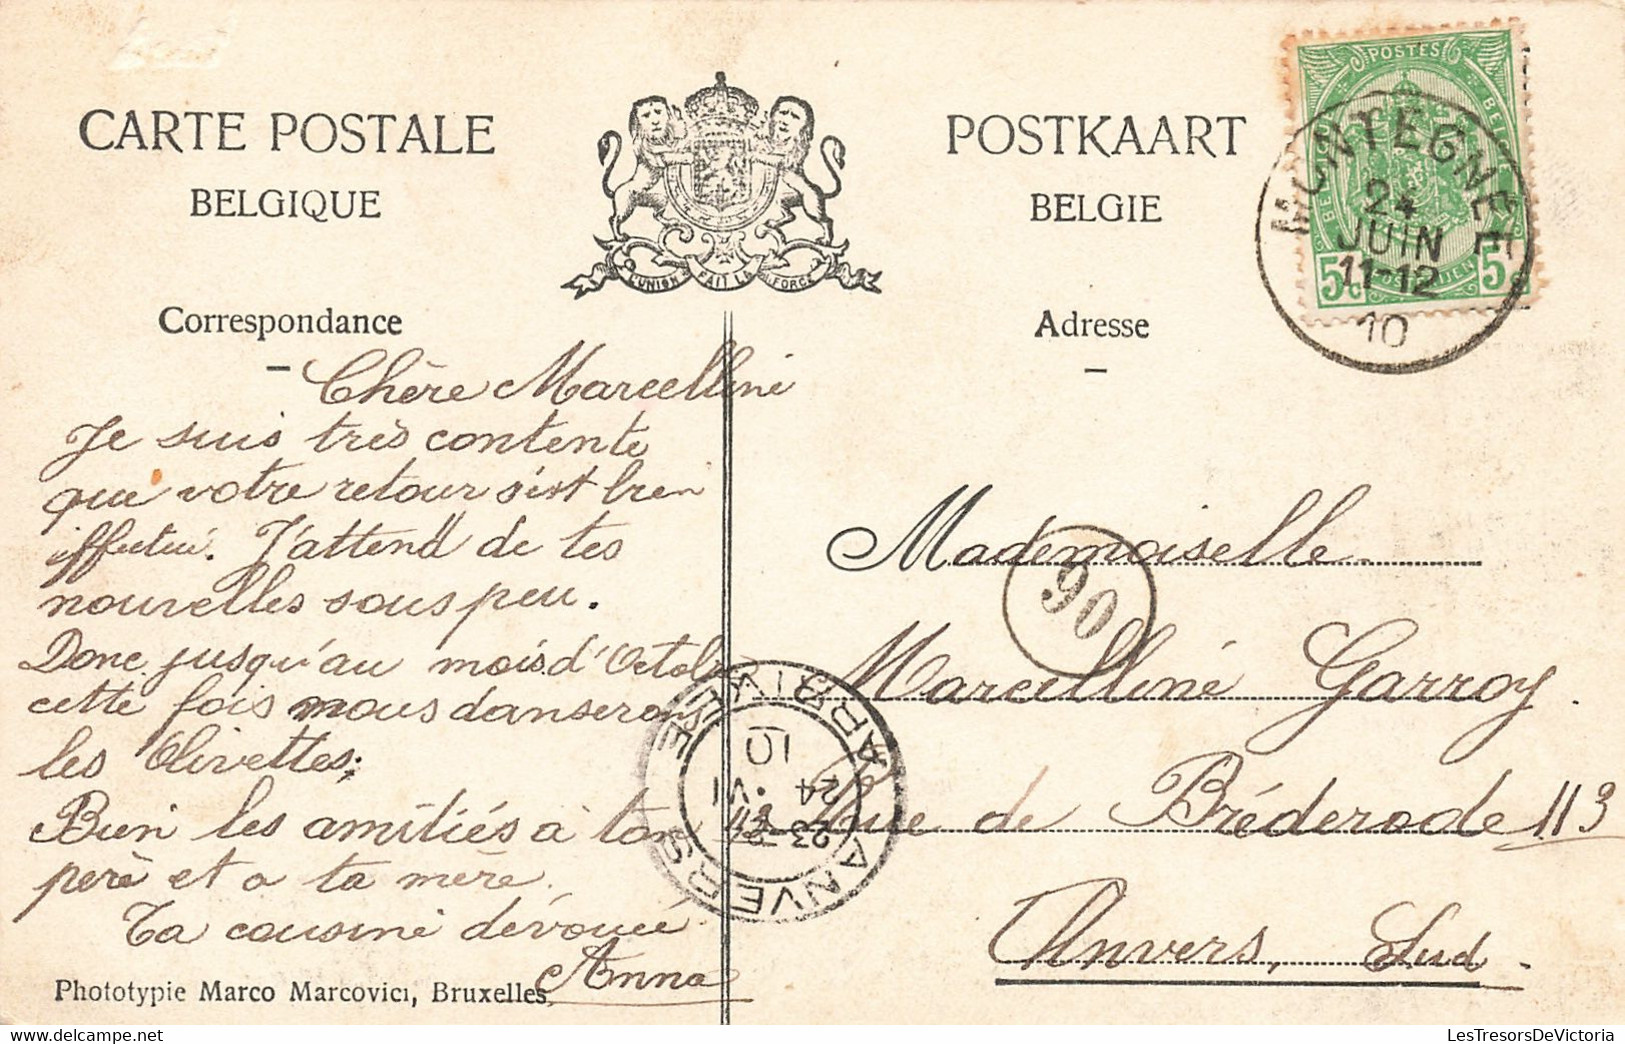 CARTE POSTALE
BELGIQUE
POSTKAART
BELGIE
L'UNION FAIT LA FORCE
POSTES
5c 5c
MONTEGNEE
24
JUIN
11-12
10
Correspondance
Adresse
Chère Marcelline
Je suis très contente
que votre retour s'est bien
effectué. J'attend de tes
nouvelles sous peu.
Donc jusqu'au mois d'Octobre
cette fois nous danserons
les Olivettes;
Bien les amitiés à ton
père et a ta mère.
Ta cousine dévouée
Anna
Mademoiselle
90
Marcelline Garroy.
Rue de Bréderode 113
Anvers, Sud.
ANVERS
10
24
23
Phototypie Marco Marcovici, Bruxelles
LesTresorsDeVictoria